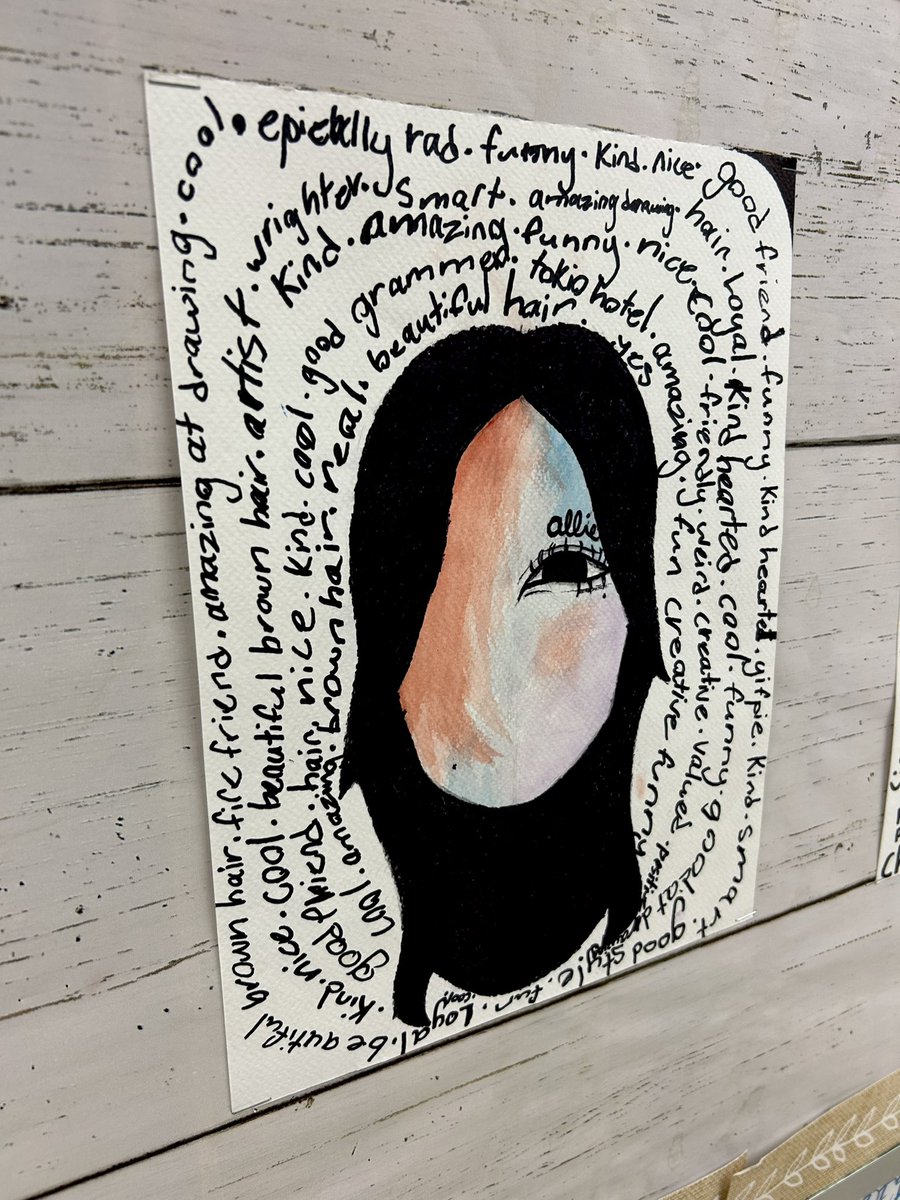 beautiful brown hair. fire friend. amazing at drawing. cool. epiclly rad. funny. Kind. nice. good friend. funny. Kind hearted. yifpie. Kind. smart. good style. fun. Loyal.
Kind. nice. cool. beautiful brown hair. artist. wrighter. Smart. amazing drawing. hair. Loyal. Kind hearted. cool. funny. good at drawing
good friend. hair. nice. Kind. cool. good grammer. tokio hotel. amazing. fun creative funny
Kind. amazing. funny. nice. cool. friendly. weird. creative. valued
cool. amazing. brown hair. real. beautiful hair. yes
allie